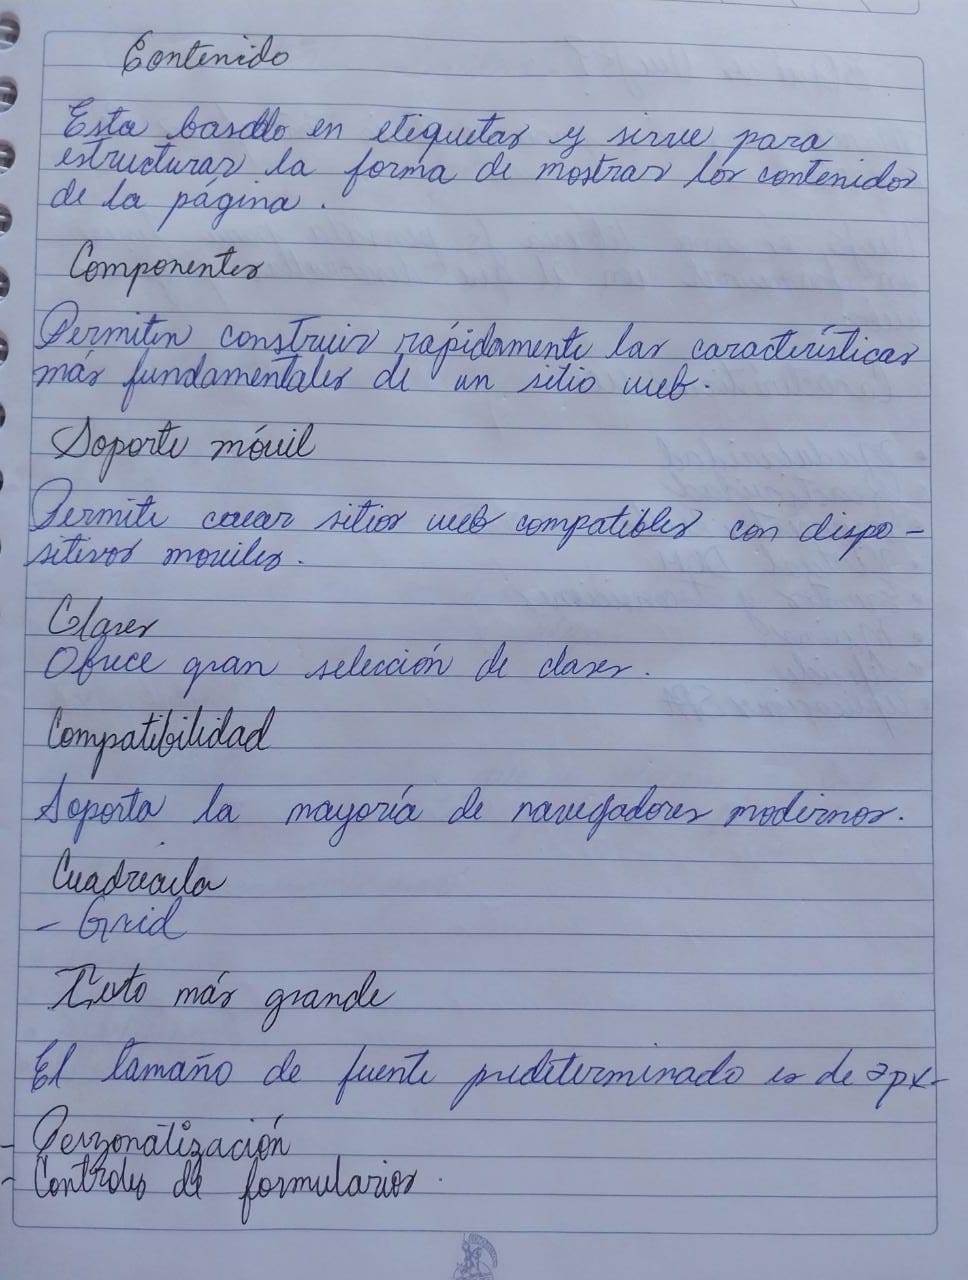 Contenido
Esta basado en etiquetas y sirve para
estructurar la forma de mostrar los contenidos
de la página.
Componentes
Permiten construir rápidamente las características
más fundamentales de un sitio web.
Soporte móvil
Permite crear sitios web compatibles con dispo-
sitivos moviles.
Clases
Ofrece gran selección de clases.
Compatibilidad
Soporta la mayoría de navegadores modernos.
Cuadrícula
- Grid
Texto más grande
El tamaño de fuente predeterminado es de
- Perzonalización
- Controles de formularios.